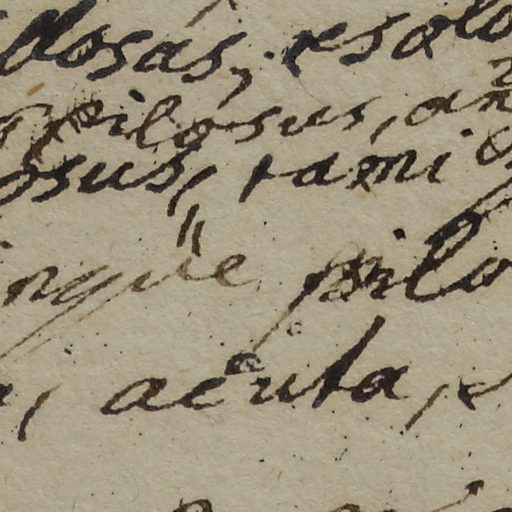 losas, esolo
pilosus, an
osus, rami
ingue pilo
acuta,